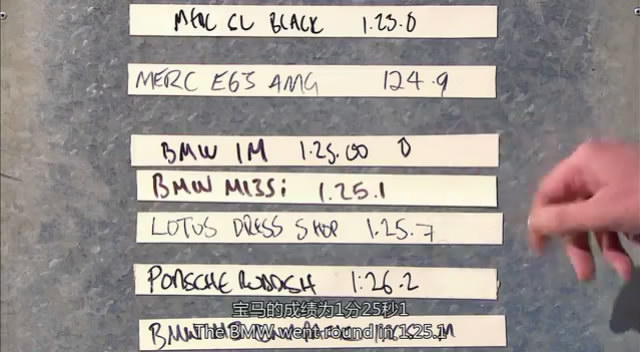 MERC CL BLACK 1.23.0
MERC E63 AMG 124.9
BMW 1M 1.25.00 0
BMW M135i 1.25.1
LOTUS DRESS SHOP 1.25.7
PORSCHE 1:26.2
宝马的成绩为1分25秒1
BMW
The BMW went round in 1.25.1